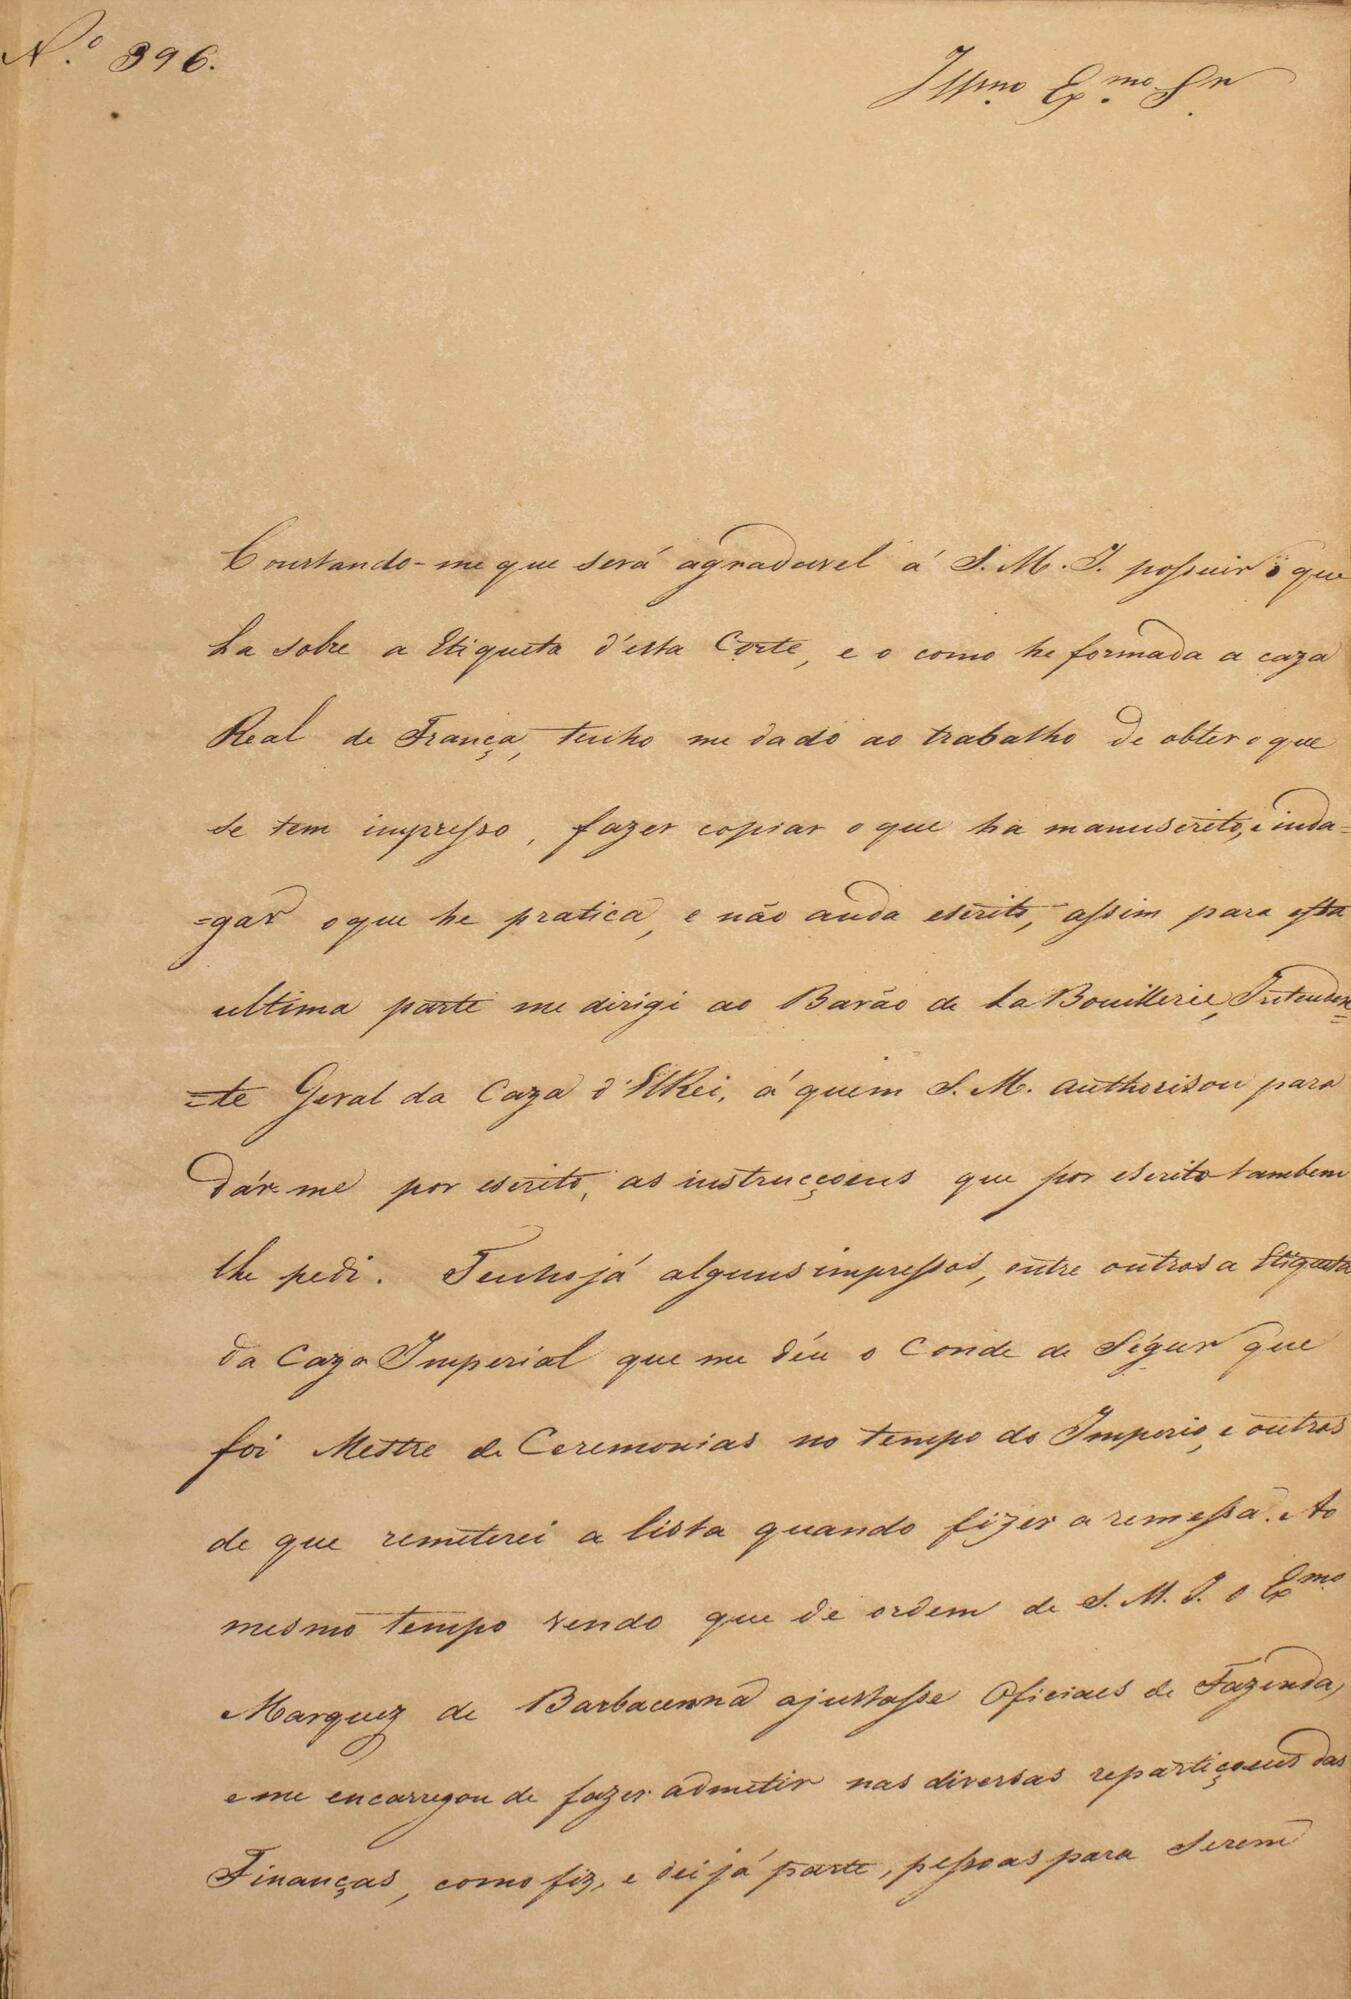 N.º 396.
Illmo. Exmo. Snr.
Constando-me que será agradavel á S. M. I. possuir o que
ha sobre a Etiqueta d'esta Corte, e o como he formada a caza
Real de França, tenho me dado ao trabalho de obter o que
se tem impresso, fazer copiar o que ha manuscrito, e inda=
=gar o que he pratica, e não anda escrito, assim para esta
ultima parte me dirigi ao Barão de La Bouillerie, Intenden=
=te Geral da Caza d'ElRei, á quem S. M. authorisou para
dár-me por escrito, as instrucçoens que por escrito tambem
lhe pedi. Tenho já alguns impressos, entre outros a Etiqueta
da Caza Imperial que me déu o Conde de Ségur que
foi Mestre de Ceremonias no tempo do Imperio, e outros
de que remeterei a lista quando fizer a remessa. Ao
mesmo tempo vendo que de ordem de S. M. I. o Exmo.
Marquez de Barbacenna ajustasse Oficiaes de Fazenda,
e me encarregou de fazer admetir nas diversas repartiçoens das
Finanças, como fiz, e dei já parte, pessoas para serem